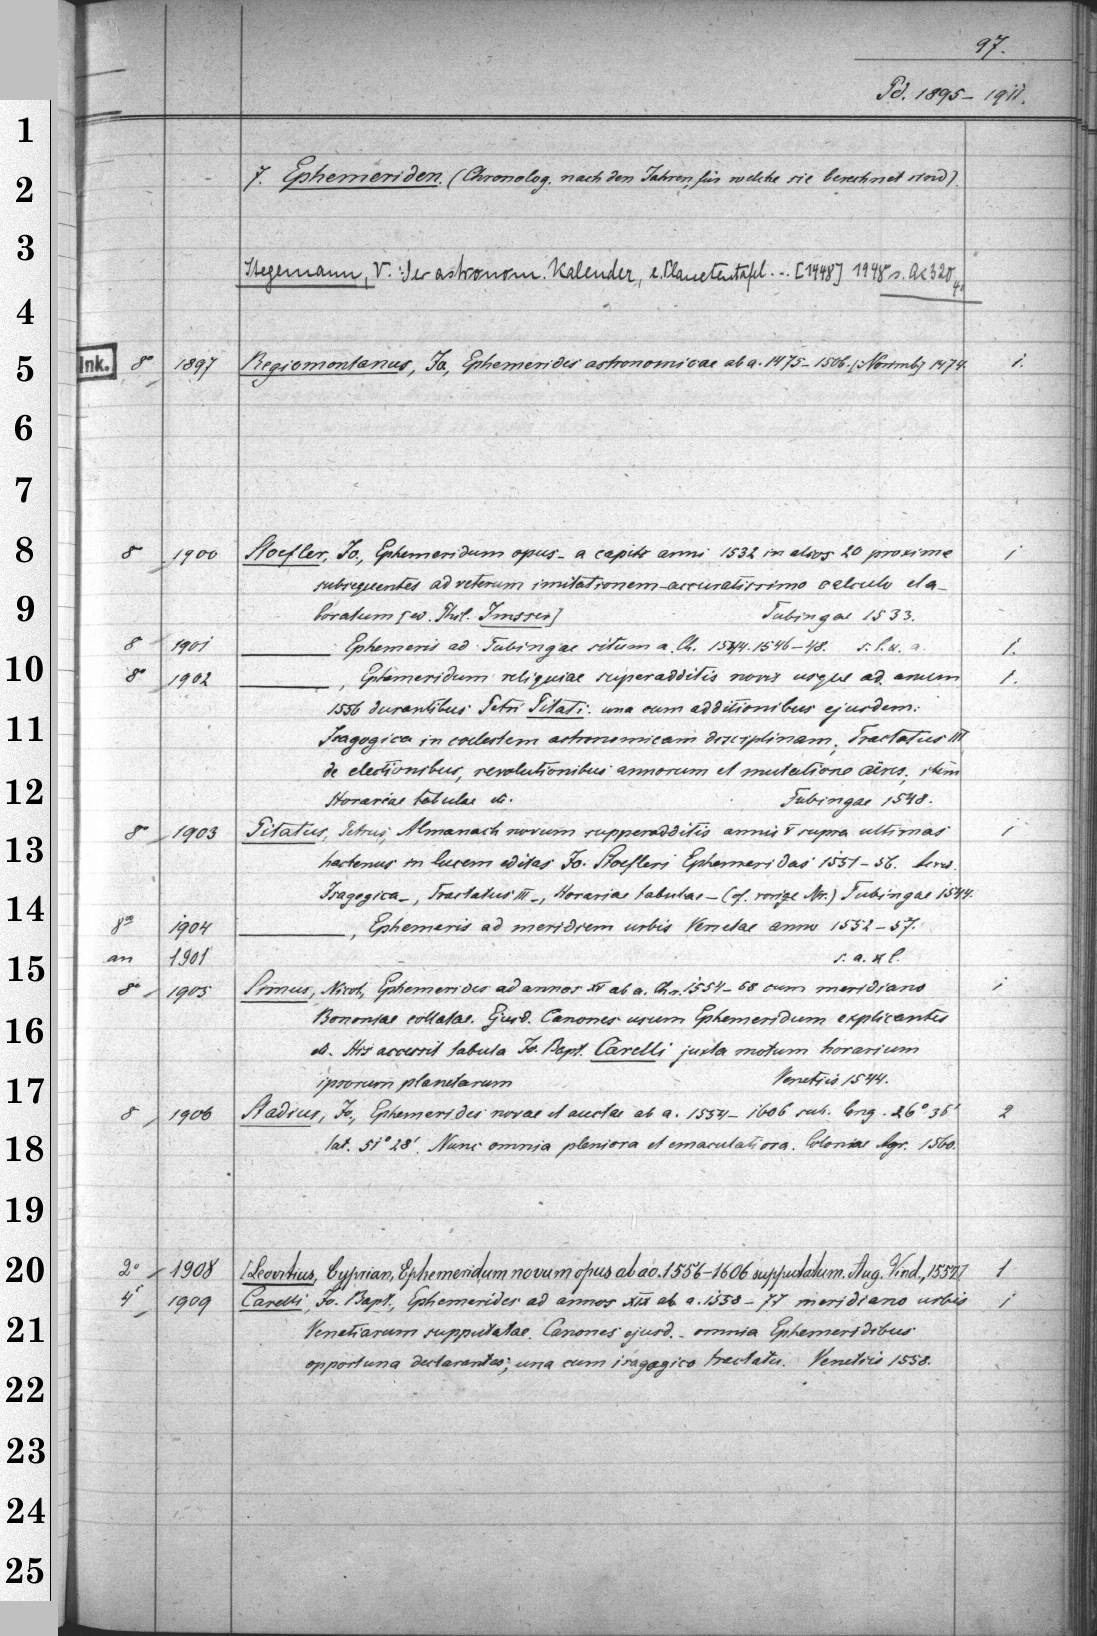 97.
Pd. 1895 – 1911.
1
2 7. Ephemeriden. (Chronolog. nach den Jahren, für welche sie berechnet sind).
3 Stegemann, V. : Der astronom. Kalender, e. Planetentafel ... [1448] 1948 s. Ac 320 4°
4
5 Ink. 8° 1897 Regiomontanus, Jo, Ephemerides astronomicae ab a. 1475 – 1506. [Norimb] 1474. 1.
6
7
8 8° 1900 Stoefler, Jo., Ephemeridum opus – a capite anni 1532 in alios 20 proxime 1
subsequentes ad veterum imitationem – accuratissimo calculo ela-
9 boratum [ed. Phil. Imsser] Tubingae 1533.
8 1901 ——— Ephemeris ad Tubingae situm a. Ch. 1544. 1546 – 48. s. l. u. a. 1.
10 8° 1902 ———, Ephemeridum reliquiae superadditis novis usque ad annum 1.
1556 durantibus Petri Pitati. una cum additionibus ejusdem:
11 Isagogica in coelestem astronomicam disciplinam, Tractatus III
de electionibus, revolutionibus annorum et mutatione aëris, item
12 Horariae tabulae etc. Tubingae 1548.
13 8° 1903 Pitatus, Petrus, Almanach novum supperadditis annis V supra ultimas 1
hactenus in lucem editas Jo. Stoefleri Ephemeridas 1551 – 56.
14 Isagogica –, Tractatus III –, Horariae tabulae – (cf. vorige Nr.) Tubingae 1544.
8° 1904 ———, Ephemeris ad meridiem urbis Venetae anno 1552 – 57.
15 an 1901 s. a. et l.
8° 1905 Simus, Nicol, Ephemerides ad annos XV ab a. Chr. 1554 – 68 cum meridiano 1
16 Bononiae collatae. Ejusd. Canones usum Ephemeridum explicantes
etc. His accessit tabula Jo. Bapt. Carelli juxta motum horarium
17 ipsorum planetarum Venetiis 1544.
8 1906 Stadius, Jo., Ephemerides novae et auctae ab a. 1554 – 1606 sub. long. 26° 36' 2
18 lat. 51° 28'. Nunc omnia pleniora et emaculatiora. Coloniae Agr. 1560.
19
20 2° 1908 [Leovitius, Cyprian, Ephemeridum novum opus ab ao. 1556 – 1606 supputatum. Aug. Vind., 1557] 1
4° 1909 Carelli, Jo. Bapt., Ephemerides ad annos XIX ab a. 1558 – 77 meridiano urbis 1
21 Venetiarum supputatae. Canones ejusd. – omnia Ephemeridibus
22 opportuna declarantes; una cum isagogico tractatu. Venetiis 1558.
23
24
25